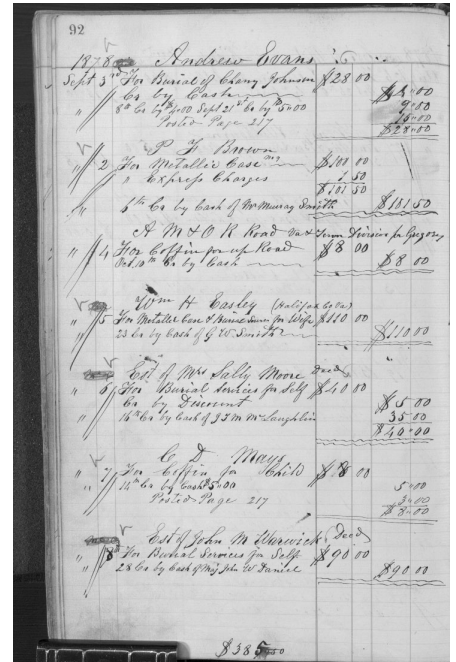 92
1878 Andrew Evans
Sept 3rd For Burial of Chany Johnson $28 00
Cr by Cash $4"00
8th Cr by $4"00 Sept 21st Cr by $5"00 9"00
" Posted Page 217 15"00
$28"00
P F Brown
" 2 For Metallic Case $100 00
" Express Charges 1 50
$101 50
" 6th Cr by Cash of Mr Murray Smith $101 50
A M & O R Road Va & Tenn Division for Gregory
" 4 For Coffin for up Road $8 00
Oct 10th Cr by Cash $8 00
Wm H Easley (Halifax Co Va)
" 5 For Metallic Case & Burial Serves for Wife $110 00
" 23 Cr by Cash of G W Smith $110 00
Est of Mrs Sally Moore Deed
" 6 For Burial Services for Self $40 00
Cr by Discount $5 00
" 16th Cr by Cash of J T M McLaughlin 35 00
$40"00
C D Mays
" 7 For Coffin for Child $8 00
14th Cr by Cash $5"00 5"00
" Posted Page 217 3"00
$8"00
Est of John M Warwick (Deed)
" 8th For Burial Services for Self $90 00
" 28 Cr by Cash of Maj John W Daniel $90 00
$385"50